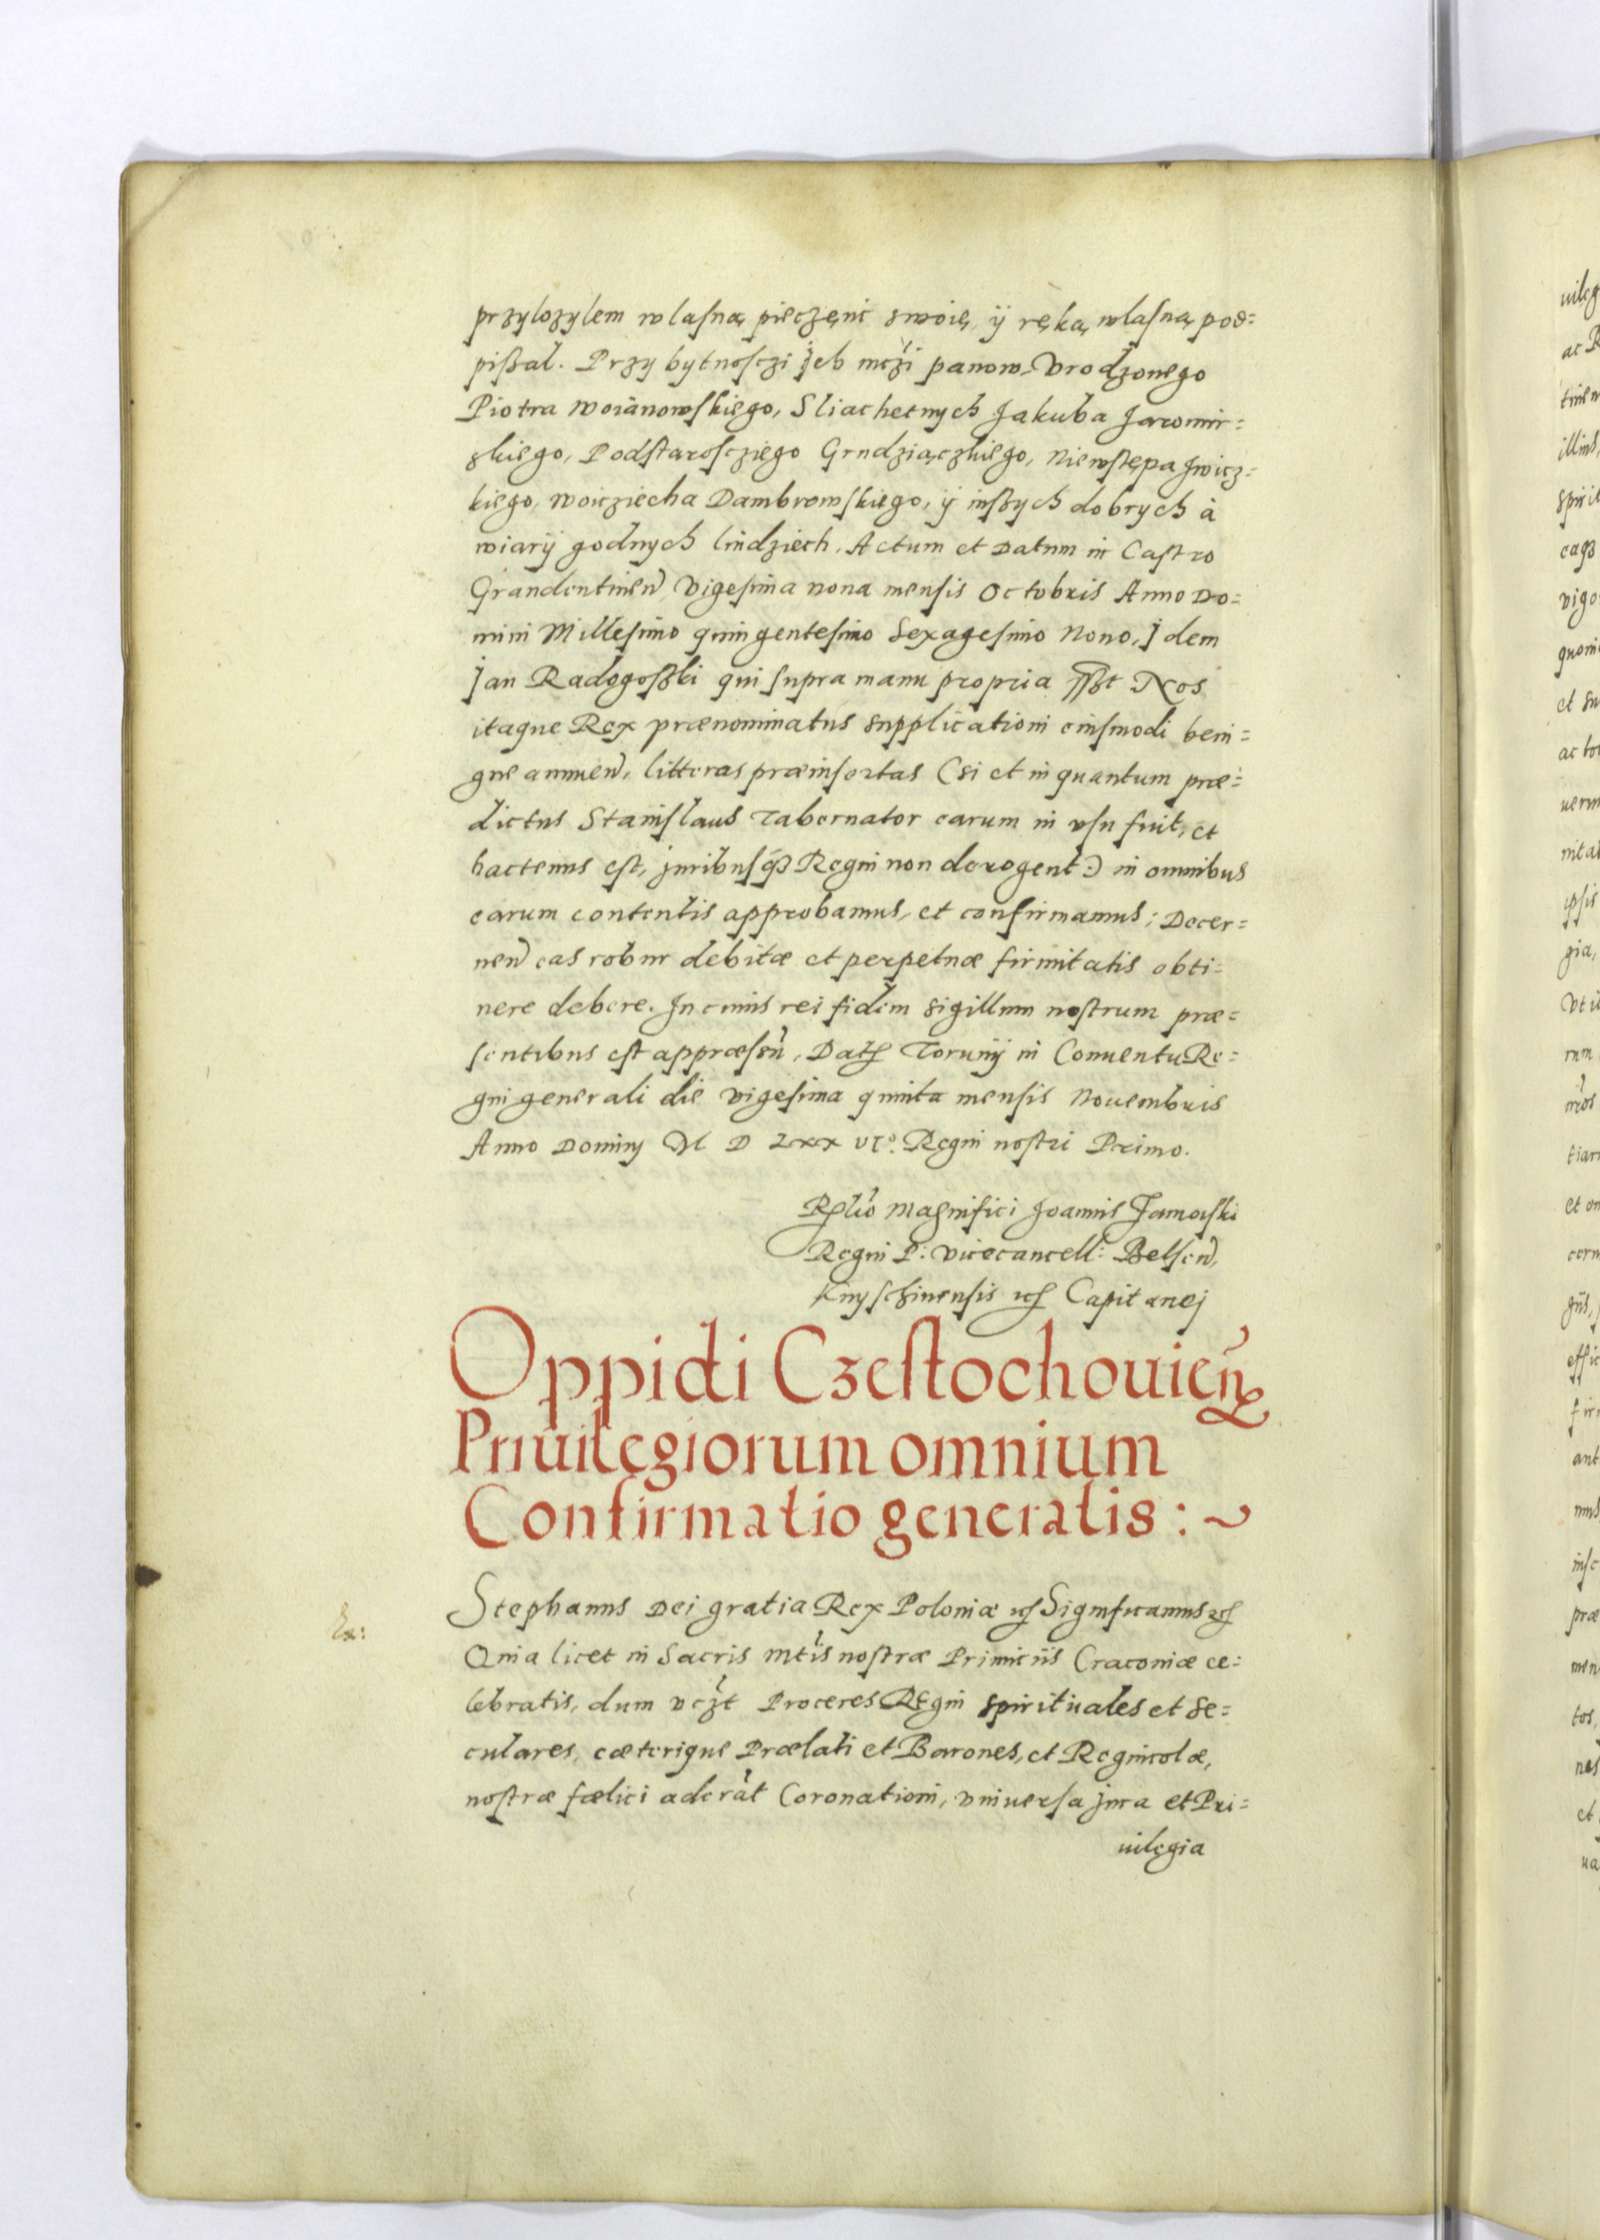 przylozylem wlasną pieczęnć swoię, ÿ ręką wlasną pod=
pißał. Przy bytnosczi Jch mczi panow, Vrodzonego
Piotra Woianowskiego, Sliachetnych Jakuba Jaromir=
skiego, Podstarosczięgo Grudziączkiego, Niewstępa Jwicz=
kiego, Woicziecha Dambrowskiego, ÿ inszych dobrych à
wiarÿ godnych liudziech. Actum et Datum in Castro
Graudentinen̄ Vigesima nona mensis Octobris Anno Do=
mini Millesimo quingentesimo Sexagesimo Nono, Jdem
Jan Radogoßki qui supra manu propria sszt Nos
itaque Rex prænominatus supplicationi eiusmodi beni=
gne annuen̄, litteras præinsertas (si et in quantum præ=
dictus Stanislaus Tabernator earum in vsu fuit, et
hactenus est, juribusq₃ Regni non derogent:) in omnibus
earum contentis approbamus, et confirmamus; Decer=
nen̄ eas robur debitæ et perpetuæ firmitatis obti=
nere debere. In cuius rei fidem sigillum nostrum præ=
sentibus est appræssū, Datꝭ Torunÿ in Conuentu Re=
gni generali die vigesima quinta mensis Nouembris
Anno Dominj M D LXX VI°. Regni nostri Primo.
Rꝑlio Magnifici Joannis Zamoiski
Regni P: Vicecancell: Belsen̄,
Knyschinensis etc Capitanej
Oppidi Czestochouien̄
Priuilegiorum omnium
Confirmatio generalis : ~
Stephanus Dei gratia Rex Poloniæ etc Significamus etc
Quia licet in Sacris Mtis nostræ Primiciis Cracouiæ ce=
lebratis, dum vczt Proceres Regni spirituales et se=
culares, cæterique Prælati et Barones, et Regnicolæ,
nostræ fælici aderāt Coronationi, vniuersa jura et Pri=
uilegia